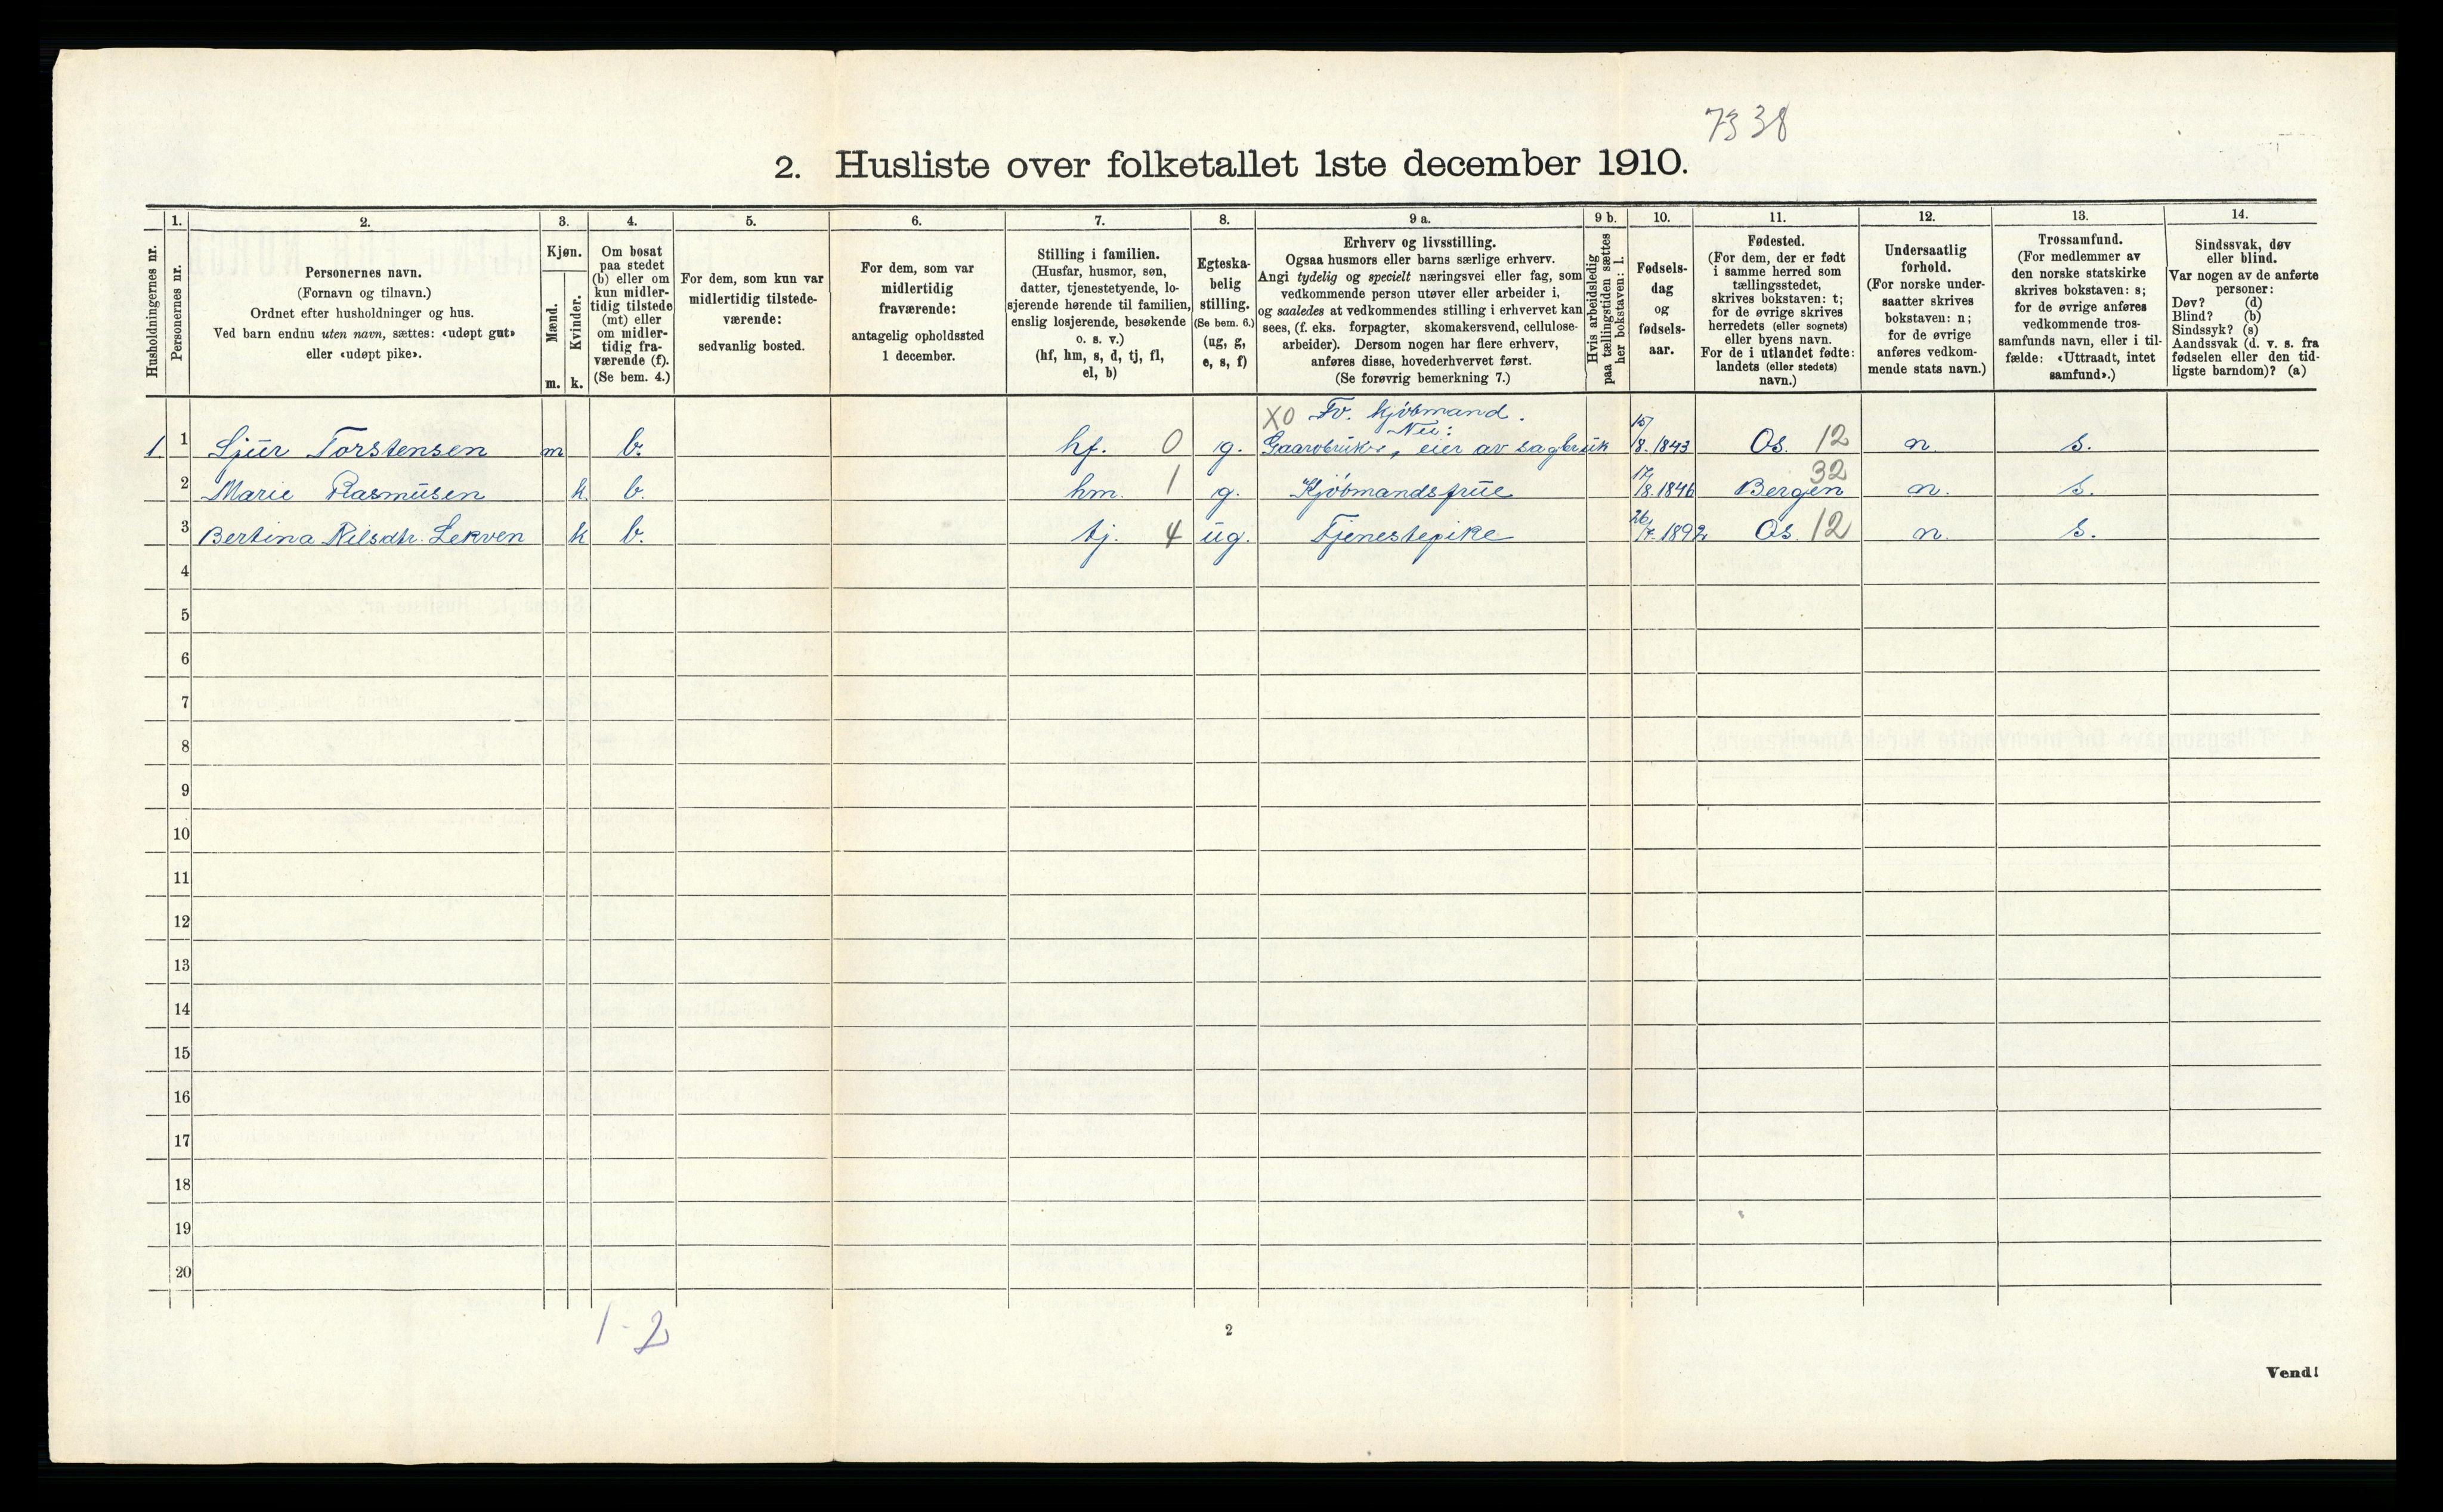 7338
2. Husliste over folketallet 1ste december 1910.
Husholdningernes nr.
1.
Personernes nr.
2.
Personernes navn.
(Fornavn og tilnavn.)
Ordnet efter husholdninger og hus.
Ved barn endnu uten navn, sættes: «udøpt gut»
eller «udøpt pike».
3.
Kjøn.
Mænd.
Kvinder.
m. k.
4.
Om bosat
paa stedet
(b) eller om
kun midler-
tidig tilstede
(mt) eller
om midler-
tidig fra-
værende (f).
(Se bem. 4.)
5.
For dem, som kun var
midlertidig tilstede-
værende:
sedvanlig bosted.
6.
For dem, som var
midlertidig
fraværende:
antagelig opholdssted
1 december.
7.
Stilling i familien.
(Husfar, husmor, søn,
datter, tjenestetyende, lo-
sjerende hørende til familien,
enslig losjerende, besøkende
o. s. v.)
(hf, hm, s, d, tj, fl,
el, b)
8.
Egteska-
belig
stilling.
(Se bem. 6.)
(ug, g,
e, s, f)
9 a.
Erhverv og livsstilling.
Ogsaa husmors eller barns særlige erhverv.
Angi tydelig og specielt næringsvei eller fag, som
vedkommende person utøver eller arbeider i,
og saaledes at vedkommendes stilling i erhvervet kan
sees, (f. eks. forpagter, skomakersvend, cellulose-
arbeider). Dersom nogen har flere erhverv,
anføres disse, hovederhvervet først.
(Se forøvrig bemerkning 7.)
9 b.
Hvis arbeidsledig
paa tællingstiden sættes
her bokstaven: l.
10.
Fødsels-
dag
og
fødsels-
aar.
11.
Fødested.
(For dem, der er født
i samme herred som
tællingsstedet,
skrives bokstaven: t;
for de øvrige skrives
herredets (eller sognets)
eller byens navn.
For de i utlandet fødte:
landets (eller stedets)
navn.)
12.
Undersaatlig
forhold.
(For norske under-
saatter skrives
bokstaven: n;
for de øvrige
anføres vedkom-
mende stats navn.)
13.
Trossamfund.
(For medlemmer av
den norske statskirke
skrives bokstaven: s;
for de øvrige anføres
vedkommende tros-
samfunds navn, eller i til-
fælde: «Uttraadt, intet
samfund».)
14.
Sindssvak, døv
eller blind.
Var nogen av de anførte
personer:
Døv? (d)
Blind? (b)
Sindssyk? (s)
Aandssvak (d. v. s. fra
fødselen eller den tid-
ligste barndom)? (a)
XO Fv. kjøbmand.
Nu:
1 1 Sjur Torstensen m b. hf. 0 g. Gaardbruker, eier av sagbruk 15/8.1843 Os. 12 n. s.
2 Marie Rasmusen k. b. hm. 1 g. Kjøbmandsfrue 17/8.1846 Bergen 32 n. s.
3 Bertina Nilsdtr. Lekven k b. tj. 4 ug. Tjenestepike 26/7.1892 Os. 12 n. s.
4
5
6
7
8
9
10
11
12
13
14
15
16
17
18
19
20
1-2
2
Vend!